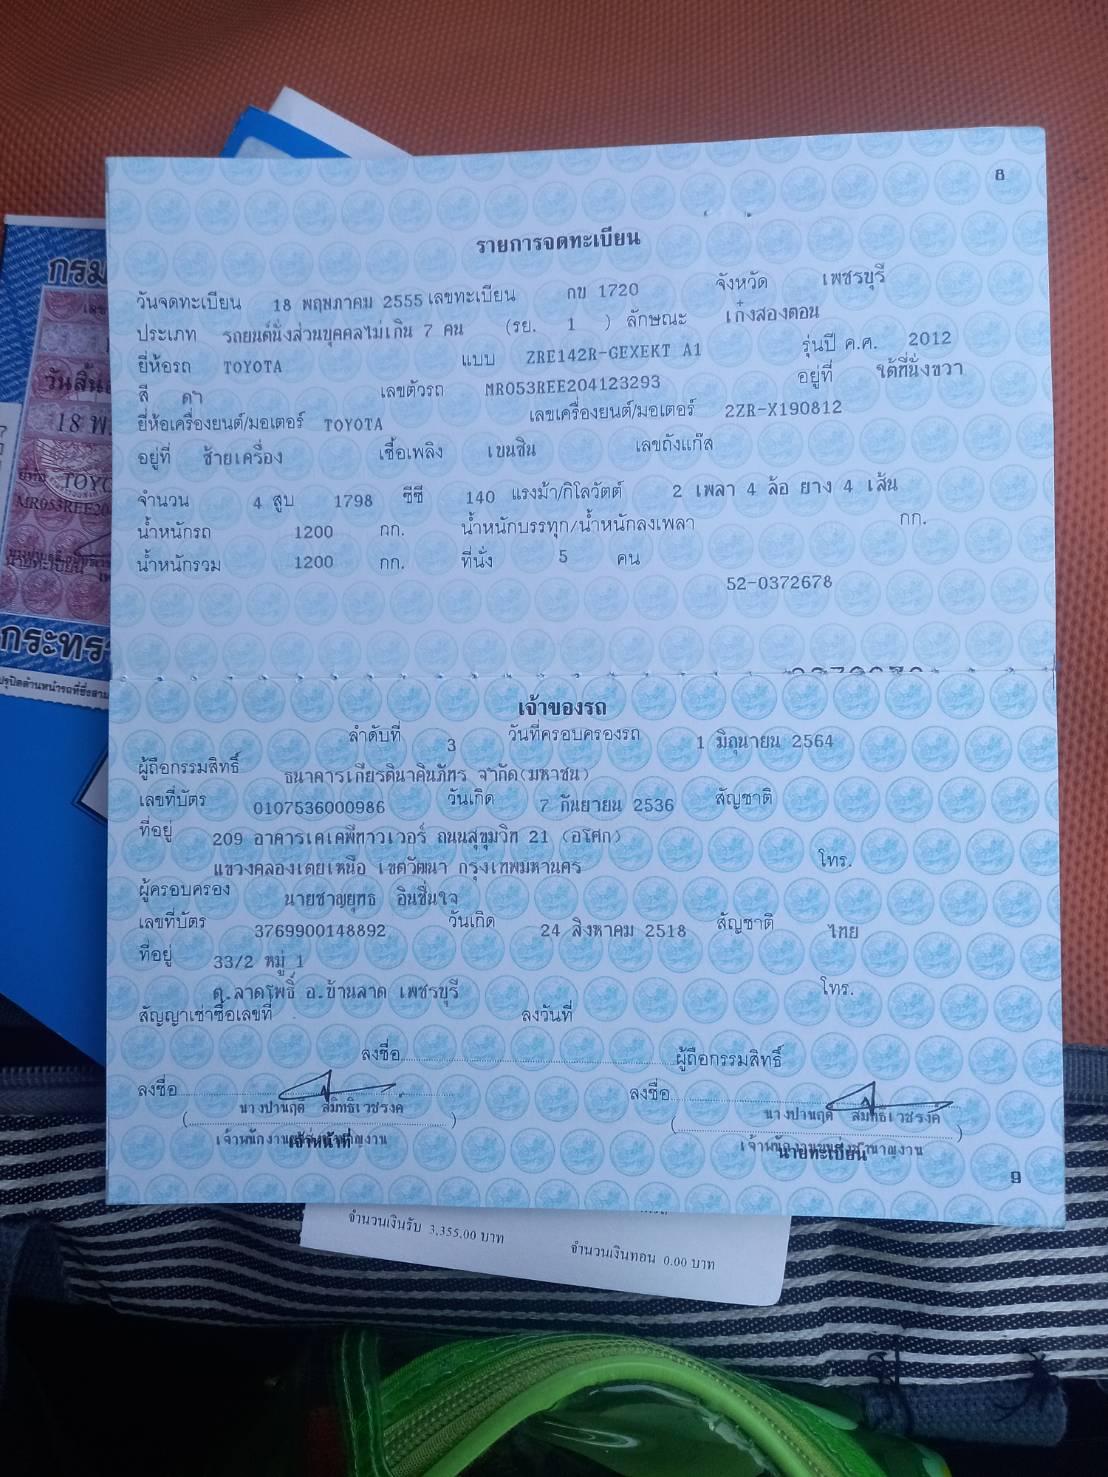 8
รายการจดทะเบียน
วันจดทะเบียน 18 พฤษภาคม 2555 เลขทะเบียน กข 1720 จังหวัด เพชรบุรี
ประเภท รถยนต์นั่งส่วนบุคคลไม่เกิน 7 คน (รย. 1 ) ลักษณะ เก๋งสองตอน
ยี่ห้อรถ TOYOTA แบบ ZRE142R-GEXEKT A1 รุ่นปี ค.ศ. 2012
สี ดำ เลขตัวรถ MR053REE204123293 อยู่ที่ ใต้ที่นั่งขวา
ยี่ห้อเครื่องยนต์/มอเตอร์ TOYOTA เลขเครื่องยนต์/มอเตอร์ 2ZR-X190812
อยู่ที่ ซ้ายเครื่อง เชื้อเพลิง เบนซิน เลขถังแก๊ส
จำนวน 4 สูบ 1798 ซีซี 140 แรงม้า/กิโลวัตต์ 2 เพลา 4 ล้อ ยาง 4 เส้น
น้ำหนักรถ 1200 กก. น้ำหนักบรรทุก/น้ำหนักลงเพลา กก.
น้ำหนักรวม 1200 กก. ที่นั่ง 5 คน
52-0372678
เจ้าของรถ
ลำดับที่ 3 วันที่ครอบครองรถ 1 มิถุนายน 2564
ผู้ถือกรรมสิทธิ์ ธนาคารเกียรตินาคินภัทร จำกัด(มหาชน)
เลขที่บัตร 0107536000986 วันเกิด 7 กันยายน 2536 สัญชาติ
ที่อยู่ 209 อาคารเคเคพีทาวเวอร์ ถนนสุขุมวิท 21 (อโศก)
แขวงคลองเตยเหนือ เขตวัฒนา กรุงเทพมหานคร โทร.
ผู้ครอบครอง นายชาญยุทธ อินชื่นใจ
เลขที่บัตร 3769900148892 วันเกิด 24 สิงหาคม 2518 สัญชาติ ไทย
ที่อยู่ 33/2 หมู่ 1
ต.ลาดโพธิ์ อ.บ้านลาด เพชรบุรี โทร.
สัญญาเช่าซื้อเลขที่ ลงวันที่
ลงชื่อ ผู้ถือกรรมสิทธิ์
ลงชื่อ ลงชื่อ
( นางปานฤดี สมิทธิเวชรงค์ ) ( นางปานฤดี สมิทธิเวชรงค์ )
เจ้าหน้าที่ นายทะเบียน
9
จำนวนเงินรับ 3,355.00 บาท จำนวนเงินทอน 0.00 บาท
กรม
วันสิ้น
18 พ.
TOYO
MR053REE20
กระทร